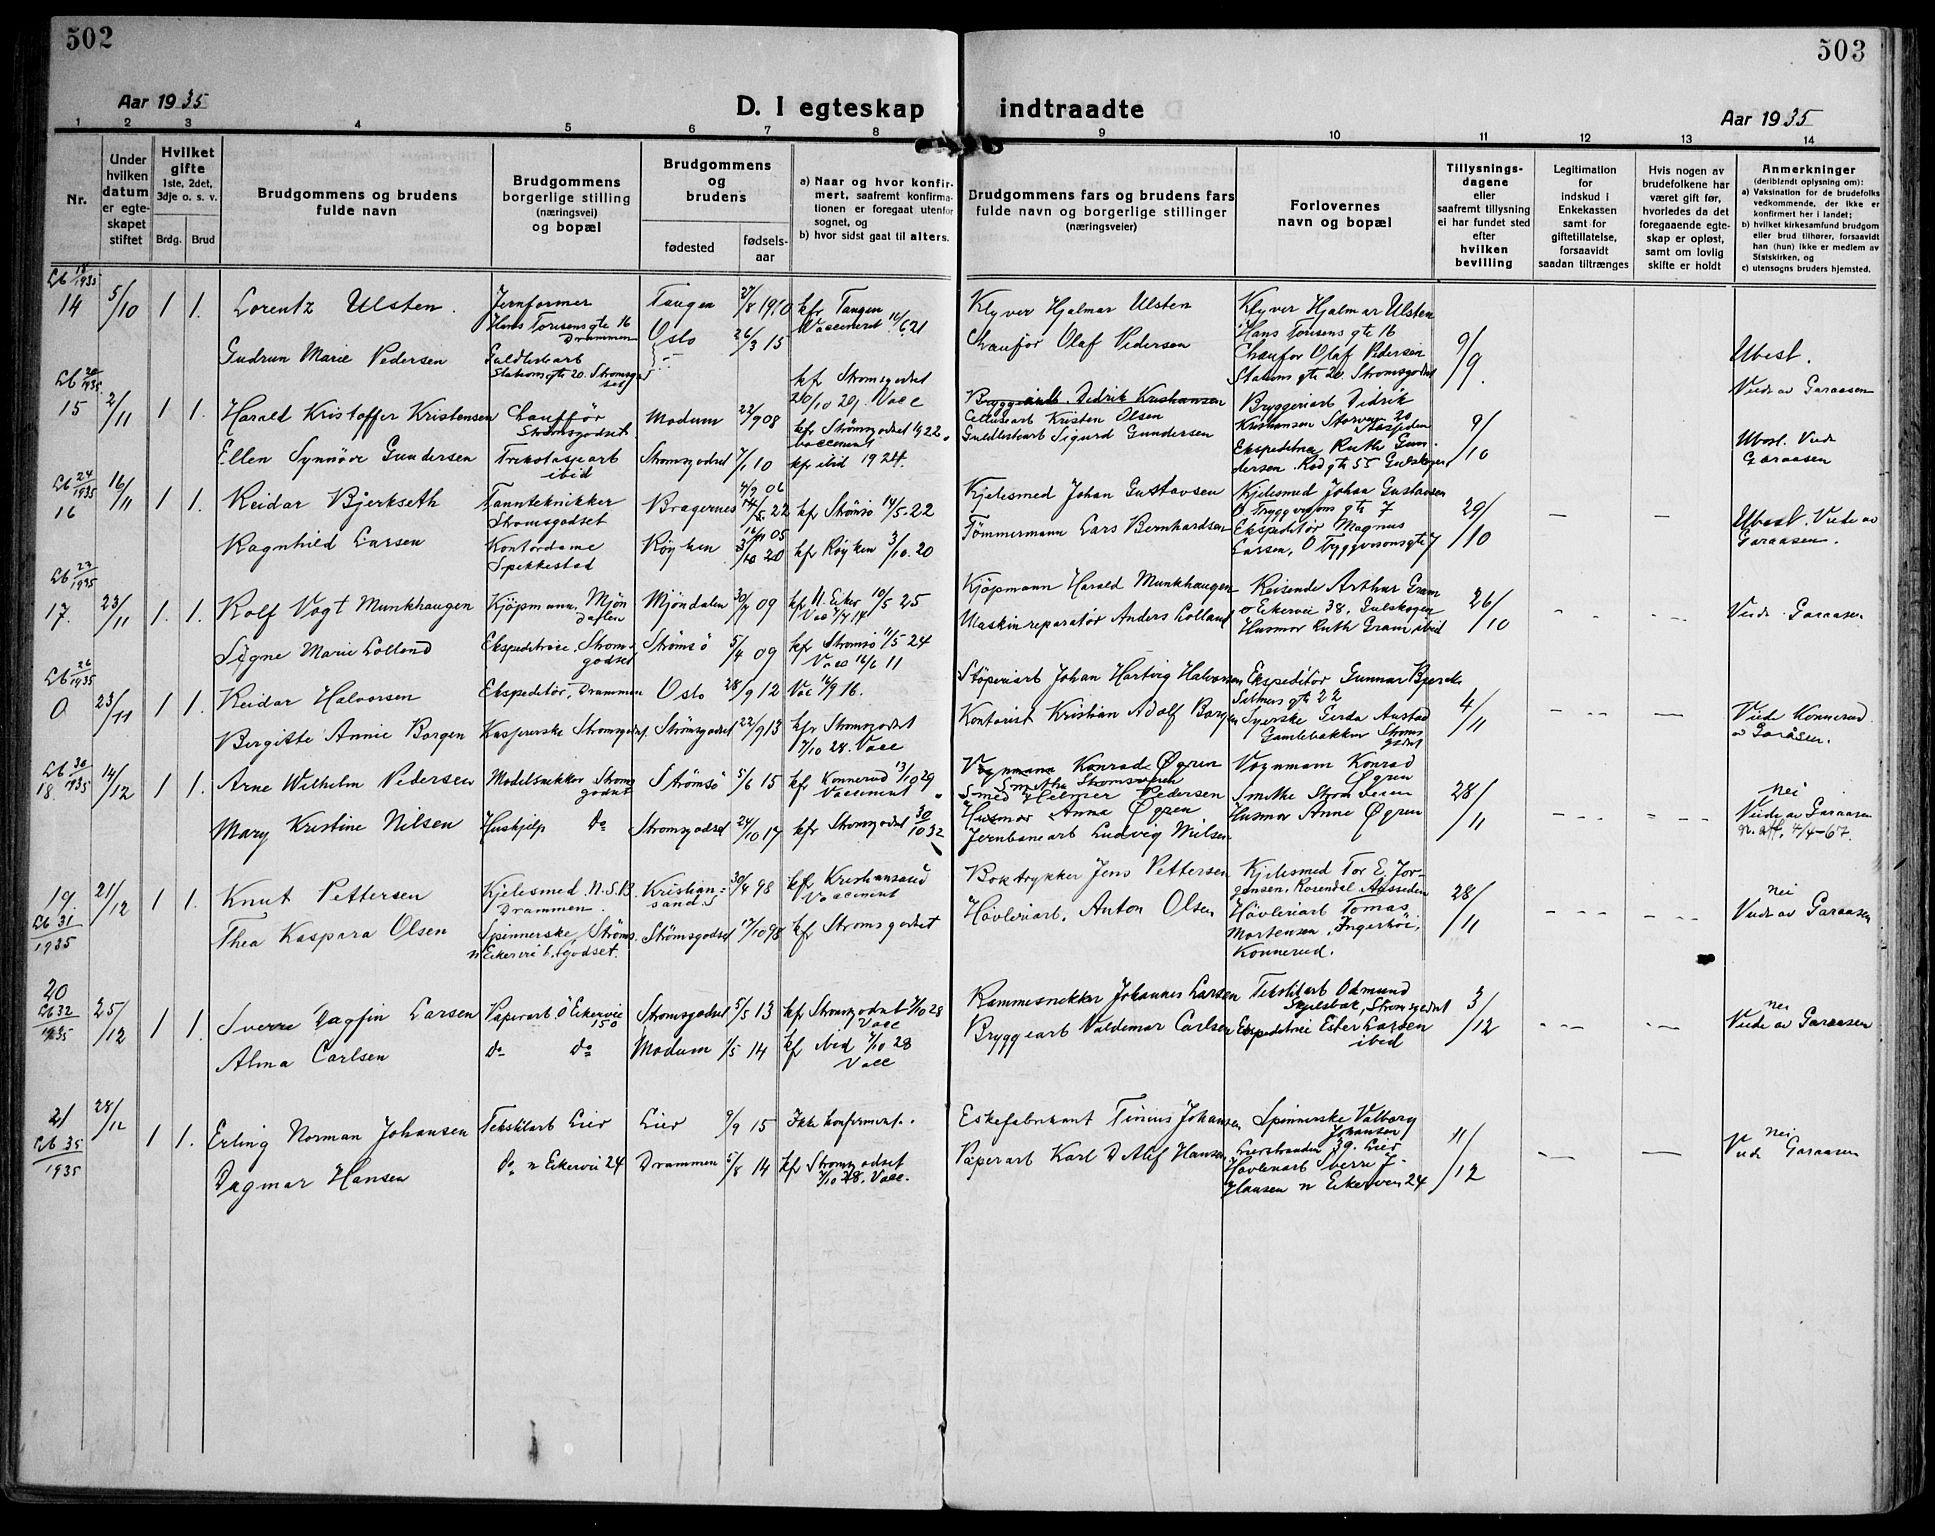 502
503
Aar 1935
D. I egteskap indtraadte
Aar 1935
1 2 3 4 5 6 7 8 9 10 11 12 13 14
Nr.
Under hvilken datum er egteskapet stiftet
Hvilket gifte 1ste, 2det, 3dje o. s. v.
Brdg. Brud
Brudgommens og brudens fulde navn
Brudgommens borgerlige stilling (næringsvei) og bopæl
Brudgommens og brudens
fødested
fødsels-aar
a) Naar og hvor konfirmert, saafremt konfirmationen er foregaat utenfor sognet, og
b) hvor sidst gaat til alters.
Brudgommens fars og brudens fars fulde navn og borgerlige stillinger (næringsveier)
Forlovernes navn og bopæl
Tillysningsdagene eller saafremt tillysning ei har fundet sted efter hvilken bevilling
Legitimation for indskud i Enkekassen samt for giftetillatelse, forsaavidt saadan tiltrænges
Hvis nogen av brudefolkene har været gift før, hvorledes da det foregaaende egteskap er opløst, samt om lovlig skifte er holdt
Anmerkninger
(deriblandt oplysning om):
a) Vaksination for de brudefolks vedkommende, der ikke er konfirmert her i landet;
b) hvilket kirkesamfund brudgom eller brud tilhører, forsaavidt han (hun) ikke er medlem av Statskirken, og
c) utensogns bruders hjemsted.
Lb 18/1935
14 5/10 1 1. Lorentz Ulsten. Jernformer Hans Tordsens gte 16 Drammen Tangen 27/8 1910 kfr Tangen Vaccineret 14/6 21 Klyver Hjalmar Ulsten Klyver Hjalmar Ulsten Hans Tordsens gte 16
Gudrun Marie Pedersen Guldlistearb Stations gte 20. Strømsgodset Oslo 26/3 15 kfr Strømsgodset 20/10 29. Vacc Chaufør Olaf Pedersen Chaufør Olaf Pedersen Stations gte 20. Strømsgodset 9/9. Ubest. Viede av Garaasen
Lb 20/1935
15 2/11 1 1. Harald Kristoffer Kristensen Chauffør Strømsgodset Modum 22/9 08 kfr Strømsgodset 1922. vaccinert Bryggeriarb. Didrik Kristiansen Cellulosearb Kristen Olsen Bryggeriarb Didrik Kristiansen Storvei 20
Ellen Synnøve Gundersen Trikotasjearb ibid Strømsgodset 7/1 10 kfr ibid 1924. Guldlistearb Sigurd Gundersen Ekspeditrise Ruth Gundersen. Rødgte 55 Gulskogen 9/10 Ubest. Viede Garaasen
Lb 24/1935
16 16/11 1 1. Reidar Bjerkseth Tanntekniker Strømsgodset Bragernes 4/9 06 14/5. 22 kfr Strømsø 14/5. 22 Kjelesmed Johan Gustavsen Kjelesmed Johan Gustavsen O Tryggvesons gte 7
Ragnhild Larsen Kontordame Spikkestad Røyken 16/11 05 3/10 20 kfr Røyken 3/10. 20 Tømmermann Lars Bernhardsen Ekspeditør Magnus Larsen, O Tryggvesonsgte 7 29/10 — — Ubest. Viede av Garaasen.
Lb 23/1935
17. 23/11 1. 1. Rolf Vogt Munkhaugen Kjøpmann, Mjøndalen Mjøndalen 30/7 09 kfr N. Eiker 10/5 25 Vacc 7/7 14 Kjøpmann Harald Munkhaugen Reisende Arthur Gram ø Eikervei 38. Gulskogen
Signe Marie Lolland Ekspeditrice, Strømsgodset Strømsø 5/4 09 kfr Strømsø 11/5 24 Vacc 16/6 11 Maskinreparatør Anders Lolland Husmor Ruth Gram ibid 26/10 Viede. Garaasen
Lb 26/1935
0 23/11 1 1. Reidar Halvorsen Ekspeditør, Drammen Oslo 28/9 12 Vac 14/9 16. Støperiarb Johan Hartvig Halvorsen Ekspeditør Gunnar Bjercke Selmers gte 22
Bergitte Annie Borgen Kaspererske Strømsgodset. Strømsgodset 22/9 13 kfr Strømsgodset 7/10 28. Vacc Kontorist Kristian Adolf Borgen Syerske Gerda Austad Gamlebakken Strømsgodset 4/11 Viede Konnerud av Garåsen.
Lb 30/1935
18. 14/12 1 1. Arne Wilhelm Pedersen Modelsnekker Strømsgodset Strømsø 5/6 15 kfr Konnerud 13/10 29 Vaccinert Vognmann Konrad Øgren Smed Helmer Pedersen Vognmann Konrad Øgren Smithe Strømsveien
Mary Kristine Nilsen Hushjelp do Strømsgodset 24/10 17 kfr Strømsgodset 30/10 32 Husmor Anna Øgren Jernbanearb Ludvig Nilsen Husmor Anne Øgren 28/11 nei Viede av Garaasen 4/4-67.
19. 21/12 1 1 Knut Pettersen Kjelesmed N.S.B. Drammen. Kristiansand S 30/4 98 kfr Kristiansand Vaccinert Boktrykker Jens Pettersen Kjelesmed Tor E. Jorgensen, Rosendal Aassiden
Lb 31/1935
Thea Kaspara Olsen Spinnerske Strømsgodset n Eikervei Strømsgodset 17/10 98 kfr Strømsgodset Høvleriarb. Anton Olsen Høvleriarb Tomas Mortensen, Ingerhöi, Konnerud. 28/11 nei Viede av Garaasen
20 Lb 32/1935
25/12 1 1. Sverre Dagfin Larsen Papirarb Ø Eikervei 150 Strømsgodset 5/5 13 kfr Strømsgodset 7/10 28 Vacc Rammesnekker Johannes Larsen Tekstilarb Odmund Skjelsbæk, Strømsgodset
Alma Carlsen do do Modum 1/5 14 kfr ibid 7/10 28 Vacc Bryggearb Valdemar Carlsen Ekspeditrice Ester Larsen ibid 3/12 nei Viede av Garaasen
21 Lb 35/1935
28/12 1 1. Erling Norman Johansen Tekstilarb Lier Lier 9/9 15 Ikke konfirmert. Eskefabrikant Tinius Johansen Spinnerske Valborg Johansen Lierstranden 39. Lier
Dagmar Hansen do n Eikervei 24 Drammen 5/8 14 kfr Strømsgodset 7/10 28. Vacc. Papirarb Karl Detlif Hansen Høvleriarb Sverre J. Hansen n Eikervei 24 11/12 nei Vied Garaasen